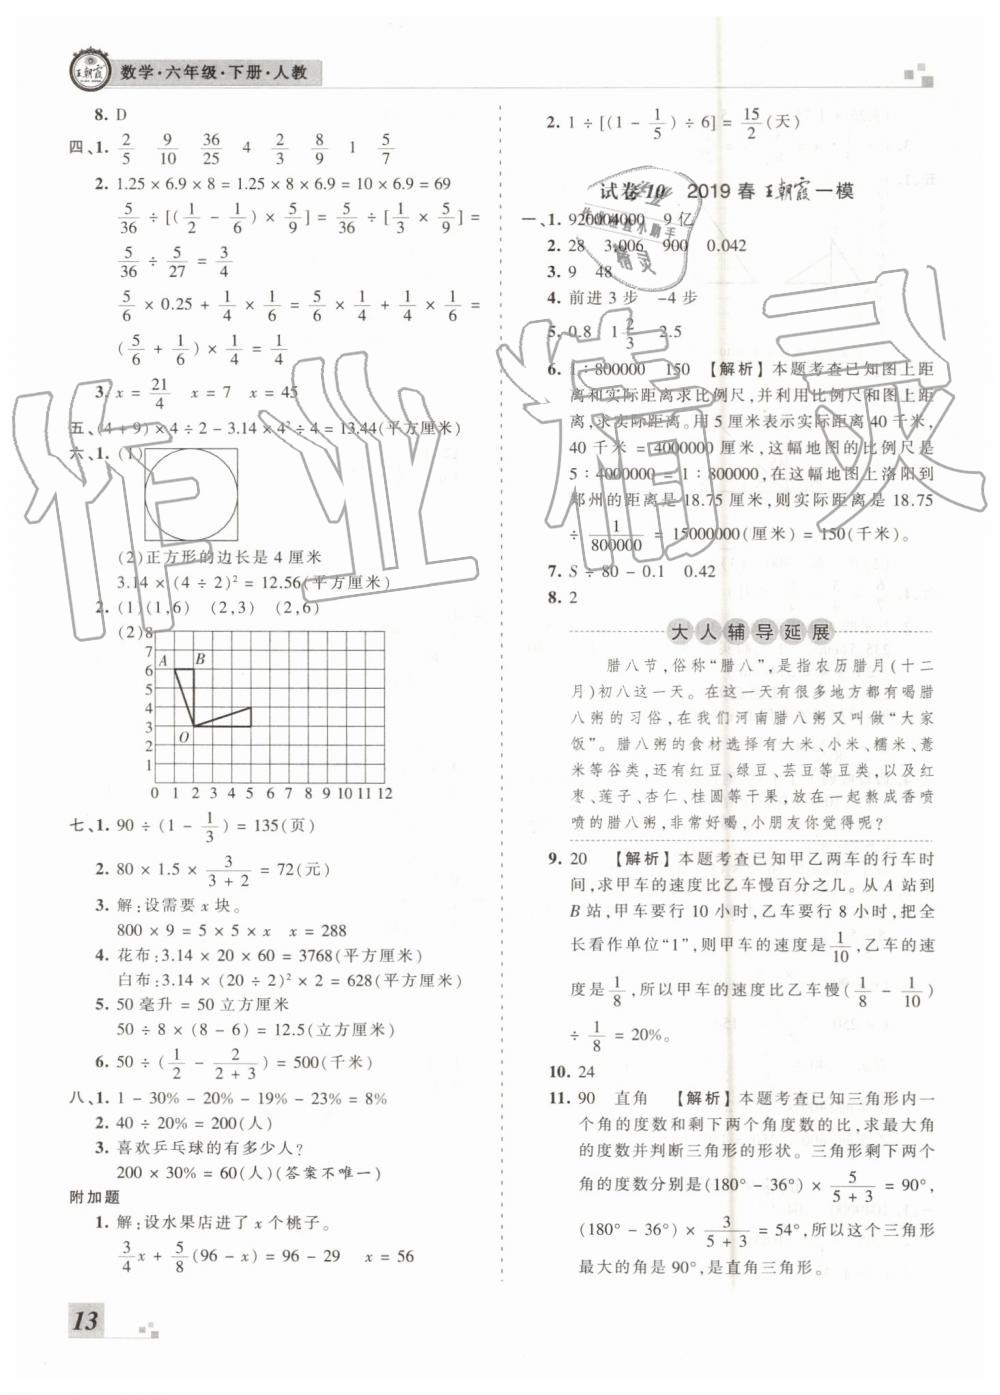 王朝霞 数学·六年级·下册·人教
8. D
四、1. 2/5 9/10 36/25 4 2/3 8/9 1 5/7
2. 1.25 × 6.9 × 8 = 1.25 × 8 × 6.9 = 10 × 6.9 = 69
5/36 ÷ [(1/2 - 1/6) × 5/9] = 5/36 ÷ [1/3 × 5/9] =
5/36 ÷ 5/27 = 3/4
5/6 × 0.25 + 1/4 × 1/6 = 5/6 × 1/4 + 1/4 × 1/6 =
(5/6 + 1/6) × 1/4 = 1/4
3. x = 21/4 x = 7 x = 45
五、(4 + 9) × 4 ÷ 2 - 3.14 × 4² ÷ 4 = 13.44(平方厘米)
六、1. (1)
(2)正方形的边长是 4 厘米
3.14 × (4 ÷ 2)² = 12.56(平方厘米)
2. (1)(1,6) (2,3) (2,6)
(2) 8
7
6
5
4
3
2
1
A B
O
0 1 2 3 4 5 6 7 8 9 10 11 12
七、1. 90 ÷ (1 - 1/3) = 135(页)
2. 80 × 1.5 × 3/(3 + 2) = 72(元)
3. 解:设需要 x 块。
800 × 9 = 5 × 5 × x x = 288
4. 花布:3.14 × 20 × 60 = 3768(平方厘米)
白布:3.14 × (20 ÷ 2)² × 2 = 628(平方厘米)
5. 50 毫升 = 50 立方厘米
50 ÷ 8 × (8 - 6) = 12.5(立方厘米)
6. 50 ÷ (1/2 - 2/(2 + 3)) = 500(千米)
八、1. 1 - 30% - 20% - 19% - 23% = 8%
2. 40 ÷ 20% = 200(人)
3. 喜欢乒乓球的有多少人?
200 × 30% = 60(人)(答案不唯一)
附加题
1. 解:设水果店进了 x 个桃子。
3/4 x + 5/8 (96 - x) = 96 - 29 x = 56
13
2. 1 ÷ [(1 - 1/5) ÷ 6] = 15/2 (天)
试卷 10 2019 春 王朝霞一模
一、1. 920004000 9 亿
2. 28 3.006 900 0.042
3. 9 48
4. 前进 3 步 -4 步
5. 0.8 1 2/3 2.5
6. 1∶800000 150 【解析】本题考查已知图上距
离和实际距离求比例尺,并利用比例尺和图上距
离,求实际距离。用 5 厘米表示实际距离 40 千米,
40 千米 = 4000000 厘米,这幅地图的比例尺是
5∶4000000 = 1∶800000,在这幅地图上洛阳到
郑州的距离是 18.75 厘米,则实际距离是 18.75
÷ 1/800000 = 15000000(厘米) = 150(千米)。
7. S ÷ 80 - 0.1 0.42
8. 2
大人辅导延展
腊八节,俗称“腊八”,是指农历腊月(十二
月)初八这一天。在这一天有很多地方都有喝腊
八粥的习俗,在我们河南腊八粥又叫做“大家
饭”。腊八粥的食材选择有大米、小米、糯米、薏
米等谷类,还有红豆、绿豆、芸豆等豆类,以及红
枣、莲子、杏仁、桂圆等干果,放在一起熬成香喷
喷的腊八粥,非常好喝,小朋友你觉得呢?
9. 20 【解析】本题考查已知甲乙两车的行车时
间,求甲车的速度比乙车慢百分之几。从 A 站到
B 站,甲车要行 10 小时,乙车要行 8 小时,把全
长看作单位“1”,则甲车的速度是 1/10,乙车的速
度是 1/8,所以甲车的速度比乙车慢(1/8 - 1/10)
÷ 1/8 = 20%。
10. 24
11. 90 直角 【解析】本题考查已知三角形内一
个角的度数和剩下两个角度数的比,求最大角
的度数并判断三角形的形状。三角形剩下两个
角的度数分别是(180° - 36°) × 5/(5 + 3) = 90°,
(180° - 36°) × 3/(5 + 3) = 54°,所以这个三角形
最大的角是 90°,是直角三角形。
作业精灵